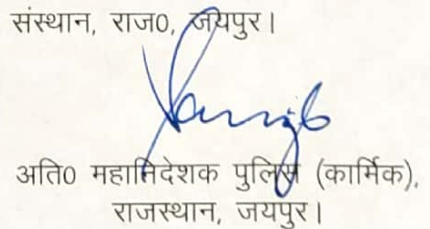 संस्थान, राज0, जयपुर।
अति0 महानिदेशक पुलिस (कार्मिक),
राजस्थान, जयपुर।